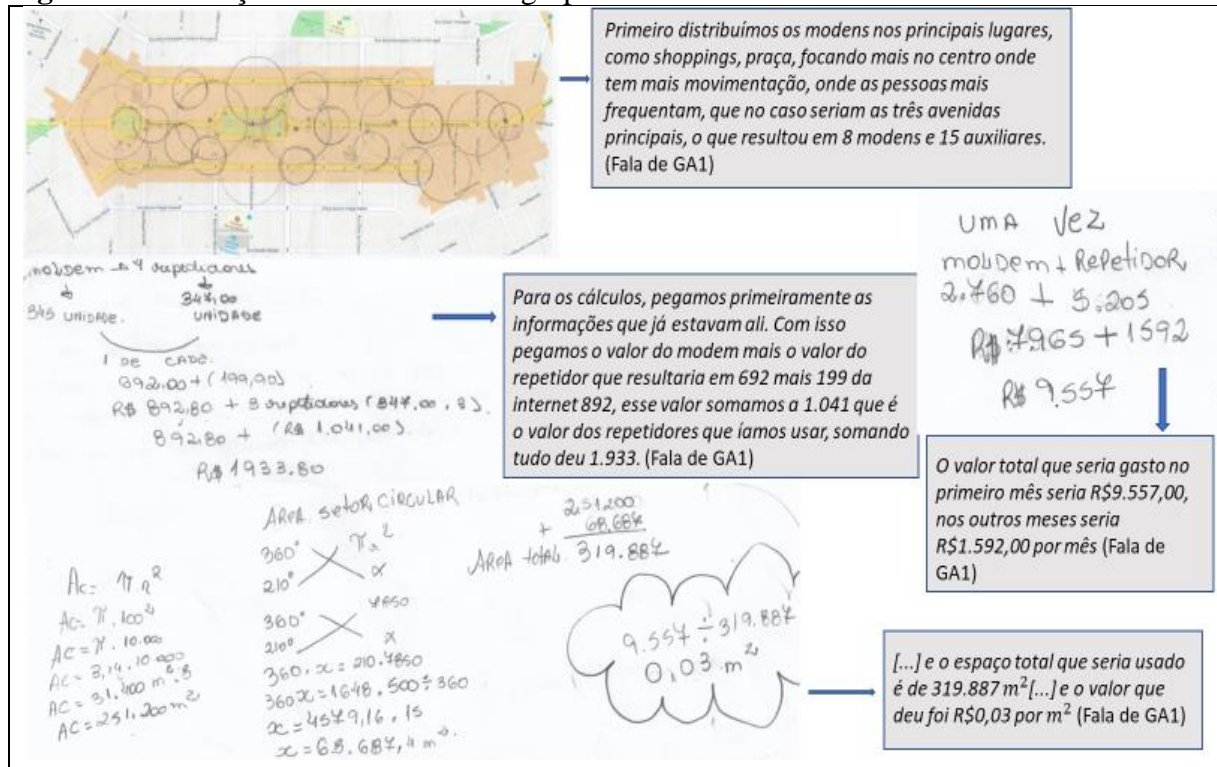 Primeiro distribuímos os modens nos principais lugares,
como shoppings, praça, focando mais no centro onde
tem mais movimentação, onde as pessoas mais
frequentam, que no caso seriam as três avenidas
principais, o que resultou em 8 modens e 15 auxiliares.
(Fala de GA1)
moldem → 4 repetidores
345 UNIDADE.
347,00
UNIDADE
1 DE CADA.
692,00 + (199,90)
R$ 892,80 + 3 repetidores (347,00 . 3).
892,80 + (R$ 1.041,00).
R$ 1933.80
Para os cálculos, pegamos primeiramente as
informações que já estavam ali. Com isso
pegamos o valor do modem mais o valor do
repetidor que resultaria em 692 mais 199 da
internet 892, esse valor somamos a 1.041 que é
o valor dos repetidores que íamos usar, somando
tudo deu 1.933. (Fala de GA1)
UMA VEZ
moldem + REPetidor
2.760 + 5.205
R$ 7.965 + 1592
R$ 9.557
O valor total que seria gasto no
primeiro mês seria R$9.557,00,
nos outros meses seria
R$1.592,00 por mês (Fala de
GA1)
Ac = π r²
Ac = π . 100²
AC = π . 10.000
AC = 3,14 . 10 000
AC = 31.400 m² . 8
AC = 251.200 m²
AREA setor CIRCULAR
360° π r²
210° x
360° 7850
210° x
360 . x = 210 . 7850
360x = 1648.500 ÷ 360
x = 4579,16 . 15
x = 68.687,4 m²
251.200
+ 68.687
AREA total 319.887
9.557 ÷ 319.887
0,03 m²
[...] e o espaço total que seria usado
é de 319.887 m² [...] e o valor que
deu foi R$0,03 por m² (Fala de GA1)